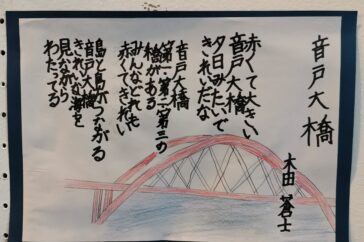 音戸大橋
木田蒼士
赤くて大きい
音戸大橋
夕日みたいで
きれいだな
音戸大橋
第一第二第三の
橋がある
みんなどれも
赤くてきれい
島と島がつながる
音戸大橋
きれいな海を
見ながら
わたってる